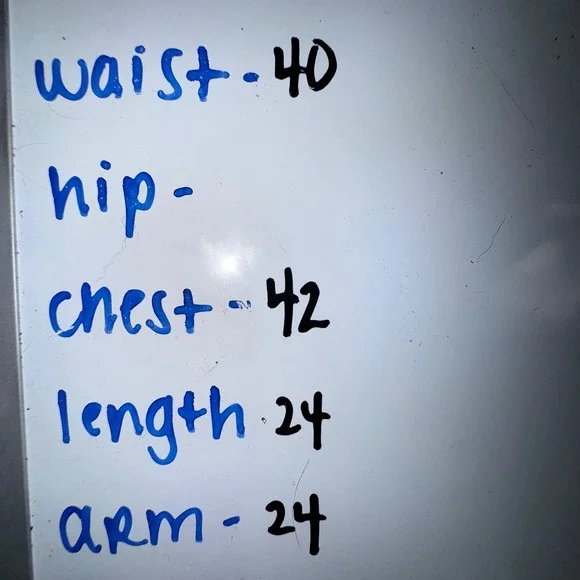 waist - 40
hip -
chest - 42
length - 24
arm - 24